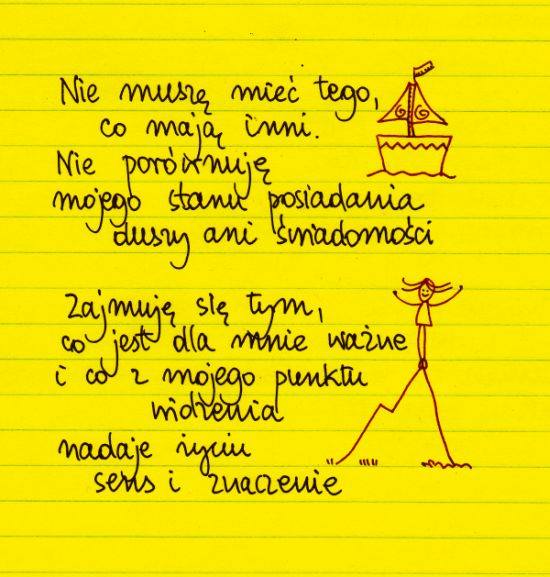 Nie muszę mieć tego,
co mają inni.
Nie porównuję
mojego stanu posiadania
duszy ani świadomości
Zajmuję się tym,
co jest dla mnie ważne
i co z mojego punktu
widzenia
nadaje życiu
sens i znaczenie